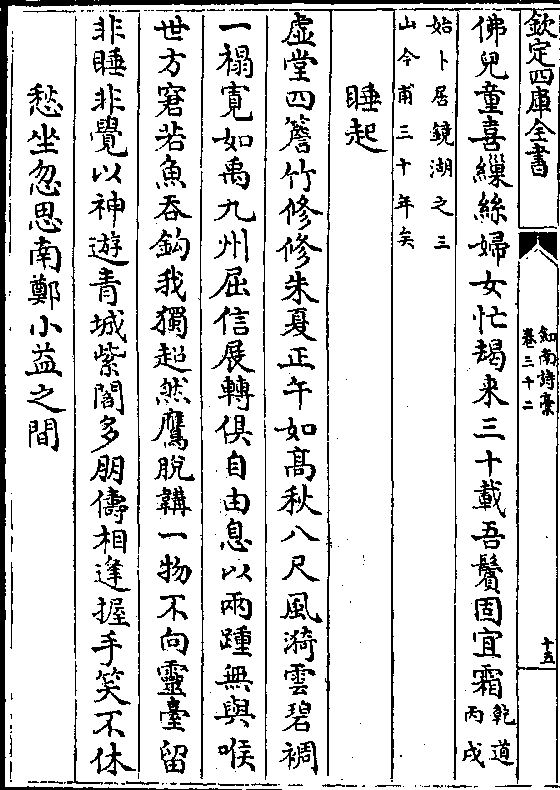 欽定四庫全書
劍南詩藁
卷三十二
十五
佛兒童喜繅絲婦女忙朅来三十載吾鬢固宜霜乾道
丙戌
始卜居鏡湖之三
山今甫三十年矣
睡起
虚堂四簷竹修修朱夏正午如髙秋八尺風漪雲碧裯
一榻寛如禹九州屈信展轉俱自由息以兩踵無與喉
世方窘若魚吞鈎我獨超然鷹脫韝一物不向靈臺留
非睡非覺以神遊青城紫閣多朋儔相逢握手笑不休
愁坐忽思南鄭小益之間